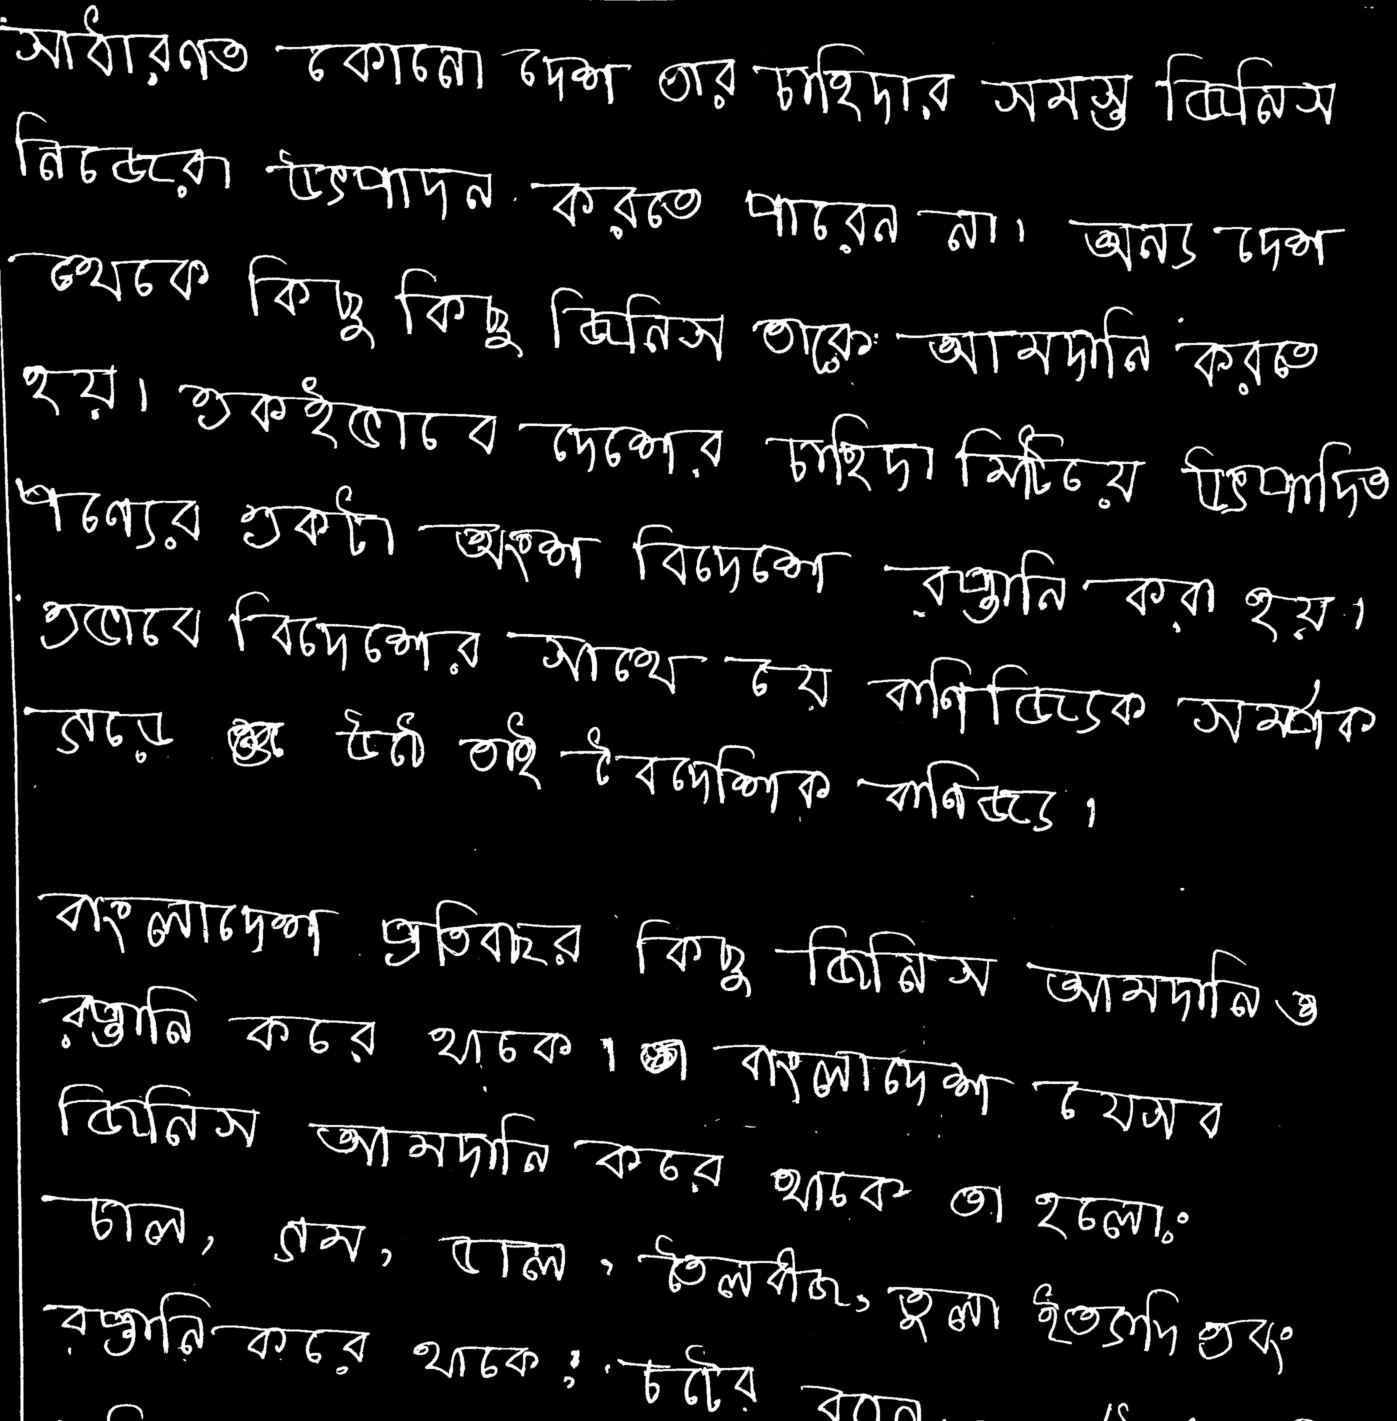 সাধারণত কোনো দেশ তার চাহিদার সমস্ত জিনিস
নিজেরা উৎপাদন করতে পারেন না। অন্য দেশ
থেকে কিছু কিছু জিনিস তাকে আমদানি করতে
হয়। একইভাবে দেশের চাহিদা মিটিয়ে উৎপাদিত
পণ্যের একটা অংশ বিদেশে রপ্তানি করা হয়।
এভাবে বিদেশের সাথে যে বাণিজ্যিক সম্পর্ক
গড়ে উঠে তাই বৈদেশিক বাণিজ্য।
বাংলাদেশ প্রতিবছর কিছু জিনিস আমদানি ও
রপ্তানি করে থাকে। বাংলাদেশ যেসব
জিনিস আমদানি করে থাকে তা হলো:
চাল, গম, ডাল, তৈলবীজ, তুলা ইত্যাদি এবং
রপ্তানি করে থাকে: চটের